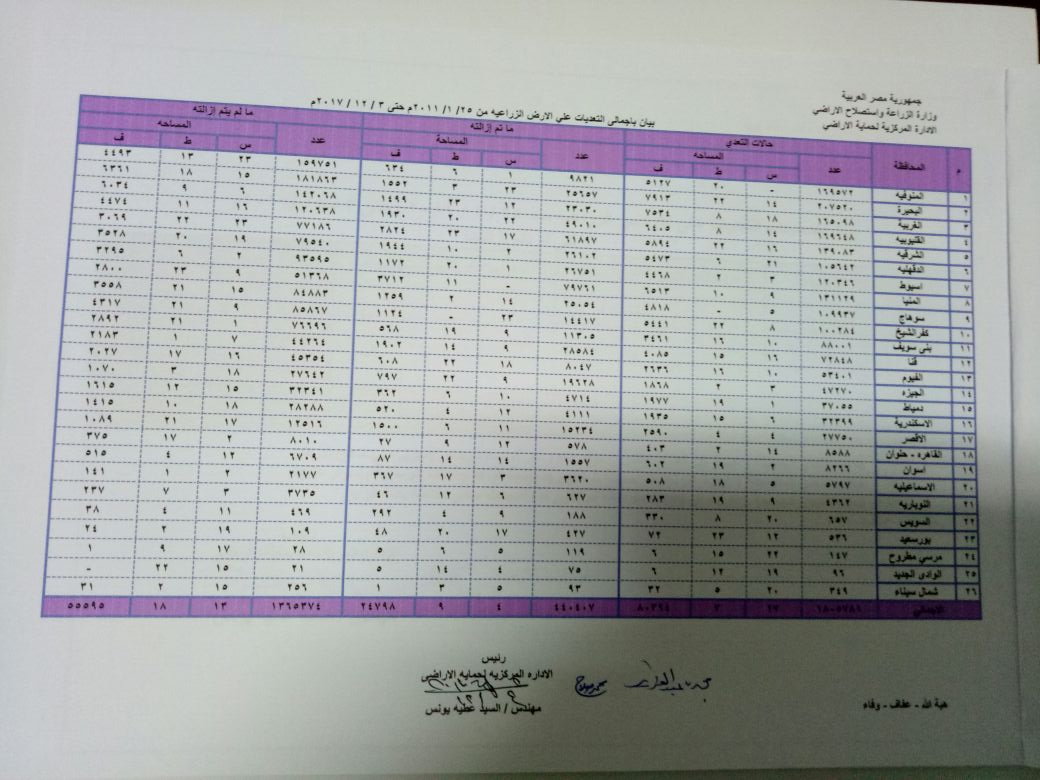 جمهورية مصر العربية
وزارة الزراعة واستصلاح الاراضي
الادارة المركزية لحماية الاراضي
بيان باجمالى التعديات علي الارض الزراعيه من ٢٥/ ١/ ٢٠١١م حتى ٣ / ١٢ / ٢٠١٧م
م المحافظة حالات التعدي ما تم إزالته ما لم يتم إزالته
عدد المساحه عدد المساحة عدد المساحه
س ط ف س ط ف س ط ف
١ المنوفيه ١٦٩٥٧٢ - ٢٠ ٥١٢٧ ٩٨٢١ ١ ٦ ٦٣٤ ١٥٩٧٥١ ٢٣ ١٣ ٤٤٩٣
٢ البحيرة ٢٠٧٥٢٠ ١٤ ٢٢ ٧٩١٣ ٢٥٦٥٧ ٢٣ ٣ ١٥٥٢ ١٨١٨٦٣ ١٥ ١٨ ٦٣٦١
٣ الغربية ١٦٥٠٩٨ ١٨ ٨ ٧٥�٤ ٢٣٠٣٠ ١٢ ٢٣ ١٤٩٩ ١٤٢٠٦٨ ٦ ٩ ٦٠٣٤
٤ القليوبيه ١٦٩٦٤٨ ١٤ ٨ ٦٤٠٥ ٤٩٠١٠ ٢٢ ٢٠ ١٩٣٠ ١٢٠٦٣٨ ١٦ ١١ ٤٤٧٤
٥ الشرقيه ١٣٩٠٨٣ ١٦ ٢٢ ٥٨٩٤ ٦١٨٩٧ ١٧ ٢٣ ٢٨٢٤ ٧٧١٨٦ ٢٣ ٢٢ ٣٠٦٩
٦ الدقهليه ١٠٥٦٤٢ ٢١ ٦ ٥٤٧٣ ٢٦١٠٢ ٢ ١٠ ١٩٤٤ ٧٩٥٤٠ ١٩ ٢٠ ٣٥٢٨
٧ اسيوط ١٢٠٣٤٦ ٣ ٢ ٤٤٦٨ ٢٦٧٥١ ١ ٢٠ ١١٧٢ ٩٣٥٩٥ ٢ ٦ ٣٢٩٥
٨ المنيا ١٣١١٢٩ ٩ ١٠ ٦٥١٣ ٧٩٧٦١ - ١١ ٣٧١٢ ٥١٣٦٨ ٩ ٢٣ ٢٨٠٠
٩ سوهاج ١٠٩٩٣٧ ٥ - ٤٨١٨ ٢٥٠٥٤ ١٤ ٢ ١٢٥٩ ٨٤٨٨٣ ١٥ ٢١ ٣٥٥٨
١٠ كفرالشيخ ١٠٠٢٨٤ ٨ ٢٢ ٥٤٤١ ١٤٤١٧ ٢٣ - ١١٢٤ ٨٥٨٦٧ ٩ ٢١ ٤٣١٧
١١ بنى سويف ٨٨٠٠١ ١٠ ١٦ ٣٤٦١ ١١٣٠٥ ٩ ١٩ ٥٦٨ ٧٦٦٩٦ ١ ٢١ ٢٨٩٢
١٢ قنا ٧٢٨٤٨ ١٦ ١٥ ٤٠٨٥ ٢٨٥٨٤ ٩ ١٤ ١٩٠٢ ٤٤٢٦٤ ٧ ١ ٢١٨٣
١٣ الفيوم ٥٣٤٠١ ١٠ ١٦ ٢٦٣٦ ٨٠٤٧ ١٨ ٢٢ ٦٠٨ ٤٥٣٥٤ ١٦ ١٧ ٢٠٢٧
١٤ الجيزه ٤٧٢٧٠ ٣ ٢ ١٨٦٨ ١٩٦٢٨ ٩ ٢٢ ٧٩٧ ٢٧٦٤٢ ١٨ ٣ ١٠٧٠
١٥ دمياط ٣٧٠٥٥ ١ ١٩ ١٩٧٧ ٤٧١٤ ١٠ ٦ ٣٦٢ ٣٢٣٤١ ١٥ ١٢ ١٦١٥
١٦ الاسكندرية ٣٢٣٩٩ ٦ ١٥ ١٩٣٥ ٤١١١ ١٢ ٤ ٥٢٠ ٢٨٢٨٨ ١٨ ١٠ ١٤١٥
١٧ الاقصر ٢٧٧٥٠ ٤ ٤ ٢٥٩٠ ١٥٢٣٤ ١١ ٦ ١٥٠٠ ١٢٥١٦ ١٧ ٢١ ١٠٨٩
١٨ القاهره - حلوان ٨٥٨٨ ١٤ ٢ ٤٠٣ ٥٧٨ ١٢ ٩ ٢٧ ٨٠١٠ ٢ ١٧ ٣٧٥
١٩ اسوان ٨٢٦٦ ٢ ١٩ ٦٠٢ ١٥٥٧ ١٤ ١٤ ٨٧ ٦٧٠٩ ١٢ ٤ ٥١٥
٢٠ الاسماعيليه ٥٧٩٧ ٥ ١٨ ٥٠٨ ٣٦٢٠ ٣ ١٧ ٣٦٧ ٢١٧٧ ٢ ١ ١٤١
٢١ النوباريه ٤٣٦٢ ٩ ١٩ ٢٨٣ ٦٢٧ ٦ ١٢ ٤٦ ٣٧٣٥ ٣ ٧ ٢٣٧
٢٢ السويس ٦٥٧ ٢٠ ٨ ٣٣٠ ١٨٨ ٩ ٤ ٢٩٢ ٤٦٩ ١١ ٤ ٣٨
٢٣ بورسعيد ٥٣٦ ١٢ ٢٣ ٧٢ ٤٢٧ ١٧ ٢٠ ٤٨ ١٠٩ ١٩ ٢ ٢٤
٢٤ مرسي مطروح ١٤٧ ٢٢ ١٥ ٦ ١١٩ ٥ ٦ ٥ ٢٨ ١٧ ٩ ١
٢٥ الوادى الجديد ٩٦ ١٩ ١٢ ٦ ٧٥ ٤ ١٤ ٥ ٢١ ١٥ ٢٢ -
٢٦ شمال سيناء ٣٤٩ ٢٠ ٥ ٣٢ ٩٣ ٥ ٣ ١ ٢٥٦ ١٥ ٢ ٣١
الاجمالي ١٨٠٥٧٨١ ١٧ ٣ ٨٠٣٩٤ ٤٤٠٤٠٧ ٤ ٩ ٢٤٧٩٨ ١٣٦٥٣٧٤ ١٣ ١٨ ٥٥٥٩٥
رئيس
الاداره المركزيه لحمايه الاراضى
مهندس / السيد عطيه يونس
هبة الله - عفاف - وفاء